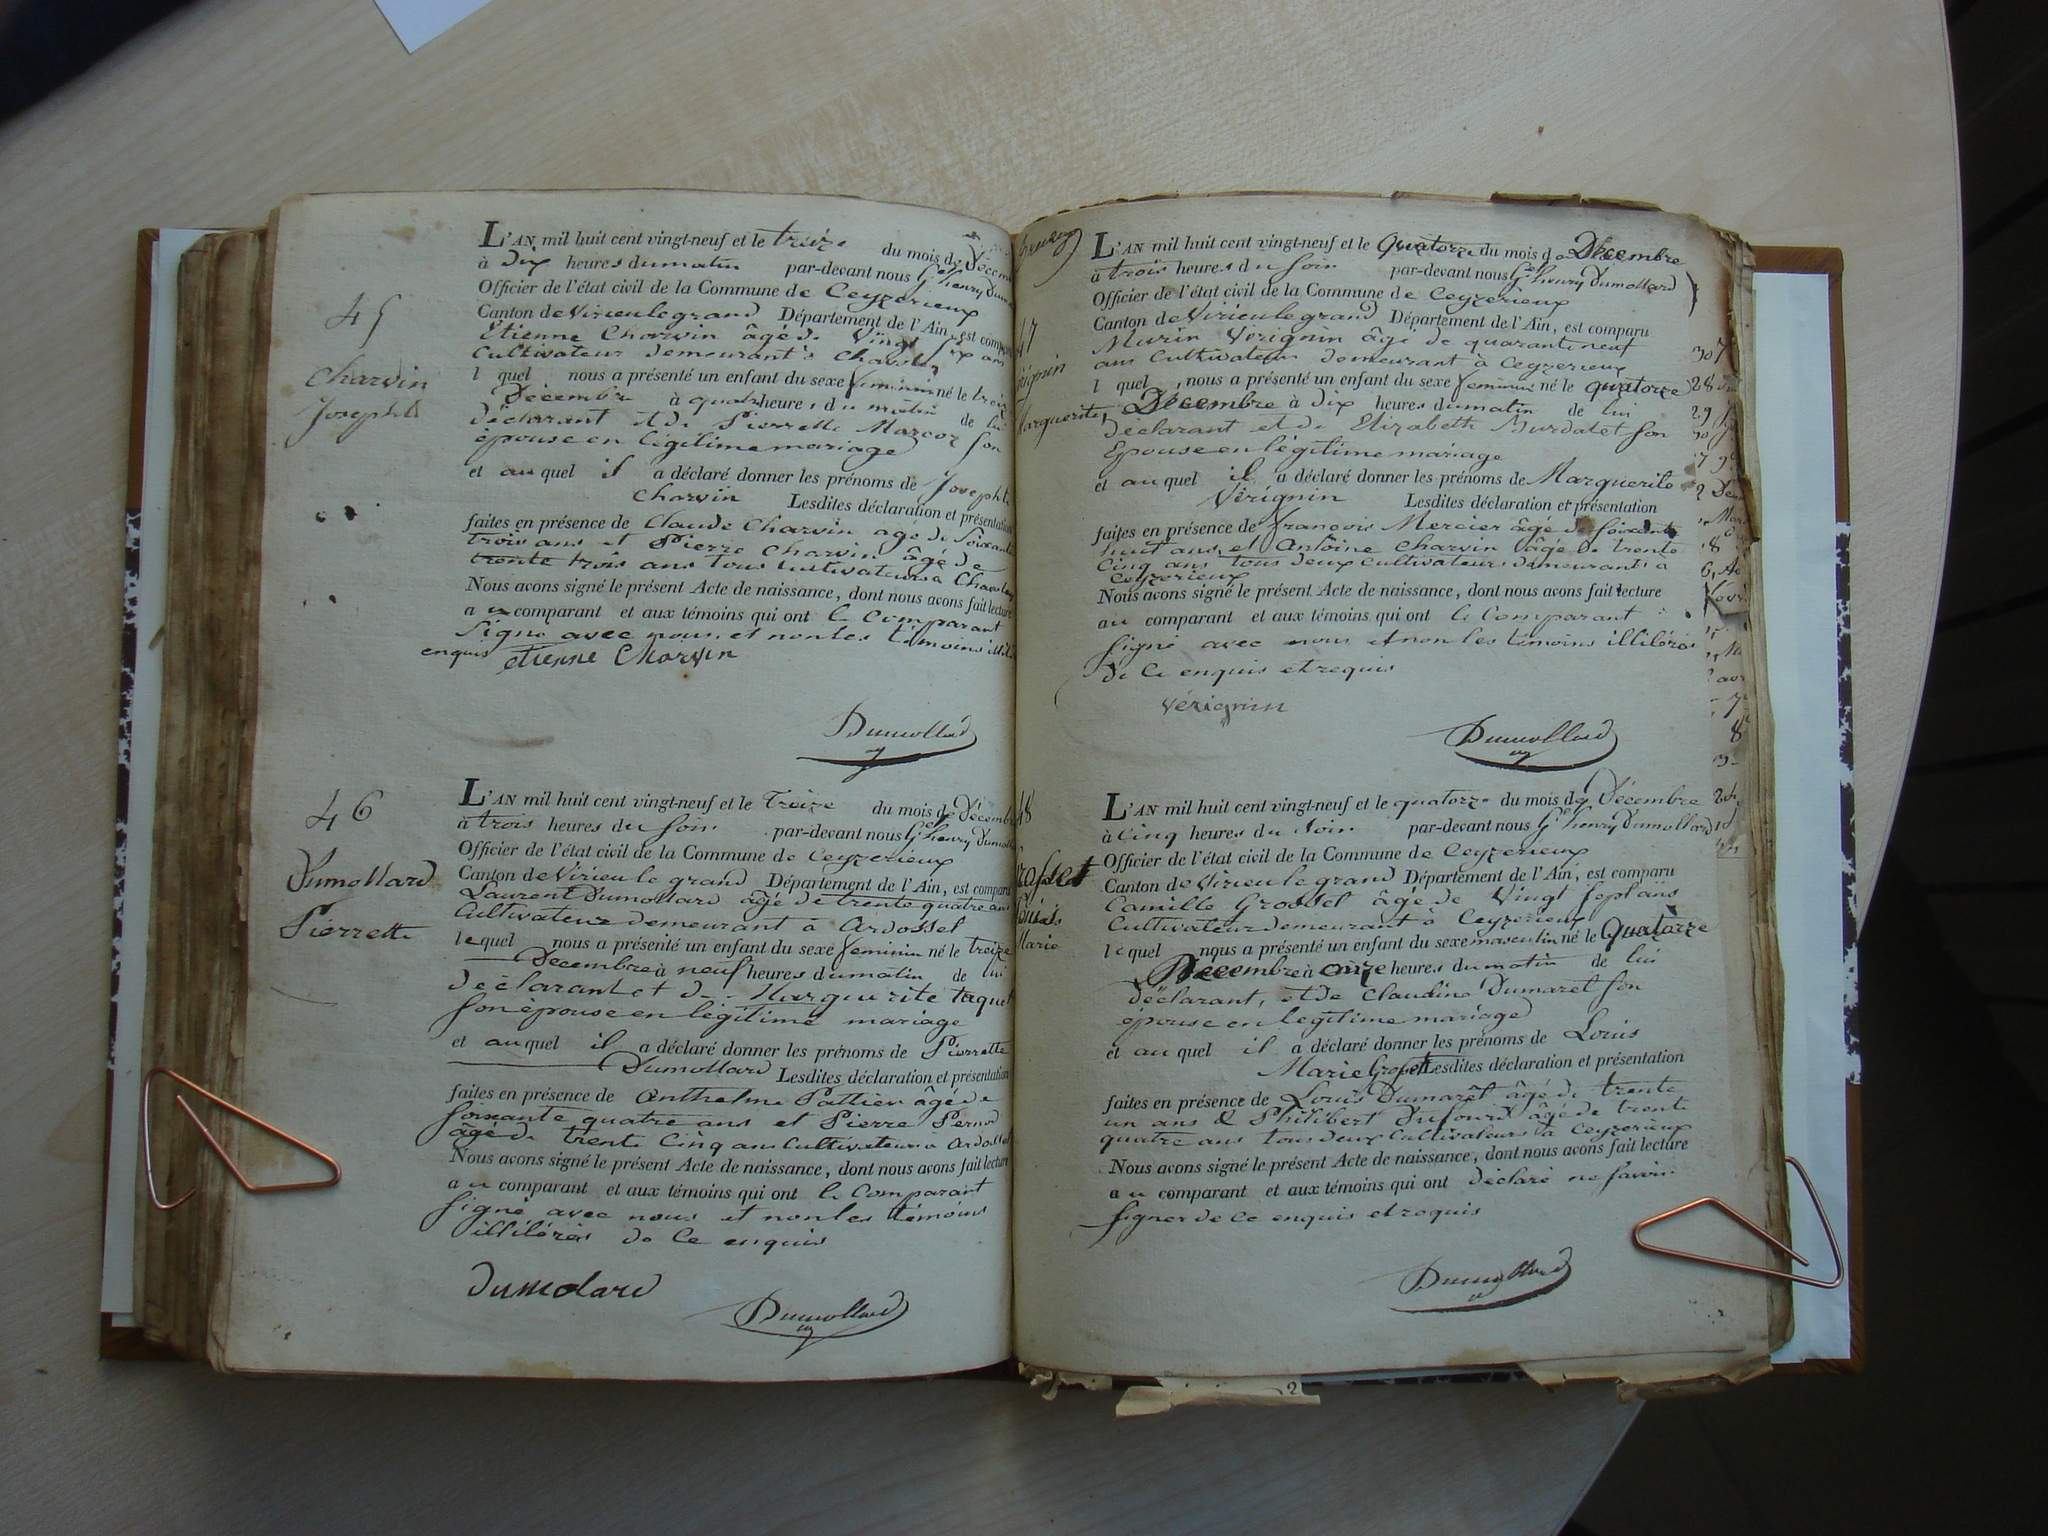 45
Charvin
Josephte
L'AN mil huit cent vingt-neuf et le treize du mois de Décem
à Dix heures du matin par-devant nous Gel henry Dum
Officier de l'état civil de la Commune de Ceyzerieux
Canton de Virieu le grand Département de l'Ain, est comparu
Etienne Charvin âgé de Vingt ans
Cultivateur demeurant à
l quel nous a présenté un enfant du sexe féminin né le treize
Décembre à quatre heures du matin de lui
déclarant et de Pierrette Marcoz son
épouse en légitime mariage
et auquel il a déclaré donner les prénoms de Josephte
Charvin Lesdites déclaration et présentation
faites en présence de Claude Charvin agé de soixante
trois ans et Pierre Charvin âgé de
trente trois ans tous cultivateurs à
Nous avons signé le présent Acte de naissance, dont nous avons fait lecture
au comparant et aux témoins qui ont le Comparant
Signé avec nous et non les témoins
enquis etienne Charvin
Dumollard
46
Dumollard
Pierrette
L'AN mil huit cent vingt-neuf et le Treize du mois de Décemb
à trois heures du soir par-devant nous Gel henry Dumoll
Officier de l'état civil de la Commune de Ceyzerieux
Canton de Virieu le grand Département de l'Ain, est comparu
Laurent Dumollard âgé de trente quatre ans
Cultivateur demeurant à Ardosset
lequel nous a présenté un enfant du sexe féminin né le treize
Décembre à neuf heures du matin de lui
déclarant et de Marguerite taquet
son épouse en légitime mariage
et auquel il a déclaré donner les prénoms de Pierrette
Dumollard Lesdites déclaration et présentation
faites en présence de Anthelme Pattier âgé de
soixante quatre ans et Pierre
âgé de trente Cinq ans Cultivateurs à Ardosset
Nous avons signé le présent Acte de naissance, dont nous avons fait lecture
au comparant et aux témoins qui ont le Comparant
signé avec nous et non les témoins
illitérés de ce enquis
Dumolard
Dumollard
47
Marguerite
L'AN mil huit cent vingt-neuf et le Quatorze du mois de Décembre
à trois heures du soir par-devant nous Gel henry Dumollard
Officier de l'état civil de la Commune de Ceyzerieux
Canton de Virieu le grand Département de l'Ain, est comparu
Vérignin âgé de quarante neuf
ans Cultivateur demeurant à Ceyzerieux
l quel nous a présenté un enfant du sexe féminin né le quatorze
Décembre à dix heures du matin de lui
déclarant et de Elizabeth Burdalet son
Epouse en légitime mariage
et auquel il a déclaré donner les prénoms de Marguerite
Vérignin Lesdites déclaration et présentation
faites en présence de François Mercier âgé de soixante
huit ans et Antoine Charvin âgé de trente
Cinq ans tous deux cultivateurs demeurants à
Ceyzerieux
Nous avons signé le présent Acte de naissance, dont nous avons fait lecture
au comparant et aux témoins qui ont le Comparant
signé avec nous et non les témoins illitérés
de ce enquis et requis
vérignin
Dumollard
48
Marie
L'AN mil huit cent vingt-neuf et le quatorze du mois de Décembre
à Cinq heures du soir par-devant nous Gel henry Dumollard
Officier de l'état civil de la Commune de Ceyzerieux
Canton de Virieu le grand Département de l'Ain, est comparu
Camille Grosset âgé de Vingt sept ans
Cultivateur demeurant à Ceyzerieux
lequel nous a présenté un enfant du sexe masculin né le Quatorze
Décembre à onze heures du matin de lui
déclarant, et de Claudine Dumarest son
épouse en légitime mariage
et auquel il a déclaré donner les prénoms de Louis
Marie Grosset Lesdites déclaration et présentation
faites en présence de Louis Dumarêt âgé de trente
un ans & Philibert Dufourd âgé de trente
quatre ans tous deux Cultivateurs à Ceyzerieux
Nous avons signé le présent Acte de naissance, dont nous avons fait lecture
au comparant et aux témoins qui ont déclaré ne savoir
signer de ce enquis et requis
Dumollard